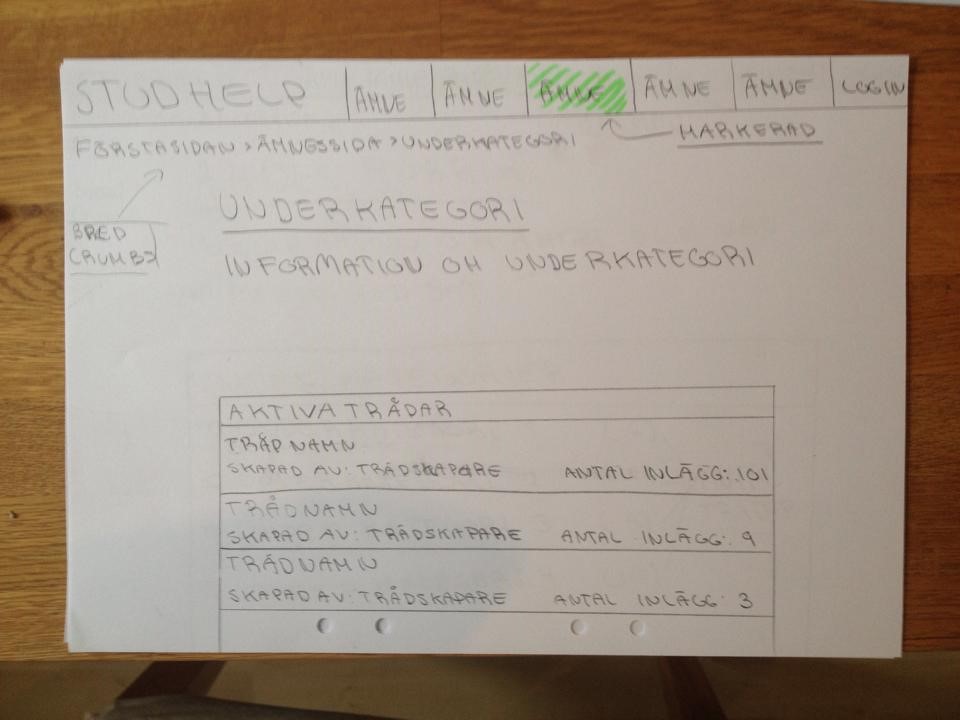 STUDHELP ÄMNE ÄMNE ÄMNE ÄMNE ÄMNE LOGIN
MARKERAD
FÖRSTASIDAN > ÄMNESSIDA > UNDERKATEGORI
BRED
CRUMBS
UNDERKATEGORI
INFORMATION OM UNDERKATEGORI
AKTIVA TRÅDAR
TRÅDNAMN
SKAPAD AV: TRÅDSKAPARE ANTAL INLÄGG: 101
TRÅDNAMN
SKAPAD AV: TRÅDSKAPARE ANTAL INLÄGG: 9
TRÅDNAMN
SKAPAD AV: TRÅDSKAPARE ANTAL INLÄGG: 3